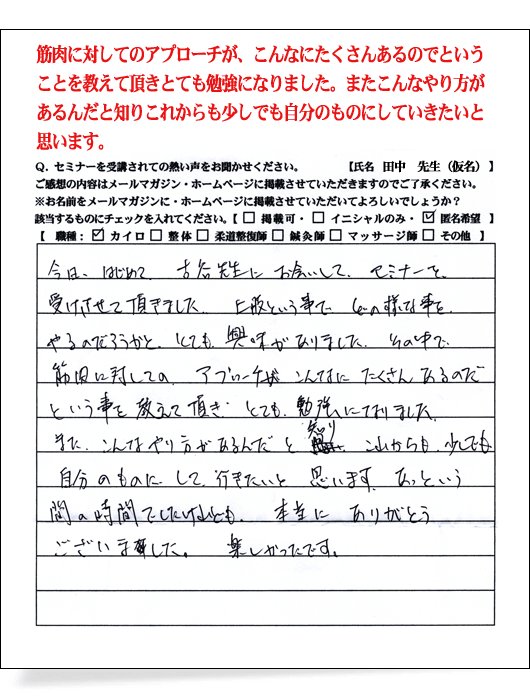 筋肉に対してのアプローチが、こんなにたくさんあるのでという
ことを教えて頂きとても勉強になりました。またこんなやり方が
あるんだと知りこれからも少しでも自分のものにしていきたいと
思います。
Q. セミナーを受講されての熱い声をお聞かせください。 【氏名 田中 先生（仮名）】
ご感想の内容はメールマガジン・ホームページに掲載させていただきますのでご了承ください。
※お名前をメールマガジンに・ホームページに掲載させていただいてよろしいでしょうか？
該当するものにチェックを入れてください。【 □ 掲載可・ □ イニシャルのみ・ ☑ 匿名希望 】
【 職種： ☑ カイロ □ 整体 □ 柔道整復師 □ 鍼灸師 □ マッサージ師 □ その他 】
今日、はじめて、古谷先生に お会いして、セミナーを、
受けさせて頂きました。上肢という事で どの様な事を、
やるのだろうかと、とても 興味がありました。その中で、
筋肉に対しての、アプローチが こんなに たくさん あるのだ
という事を 教えて 頂き、とても 勉強になりました。
また、こんなやり方があるんだ と 知り これからも、少しでも
自分のものに して 行きたいと 思います。あっという
間の時間でしたけれども、本当に ありがとう
ございました。 楽しかったです。